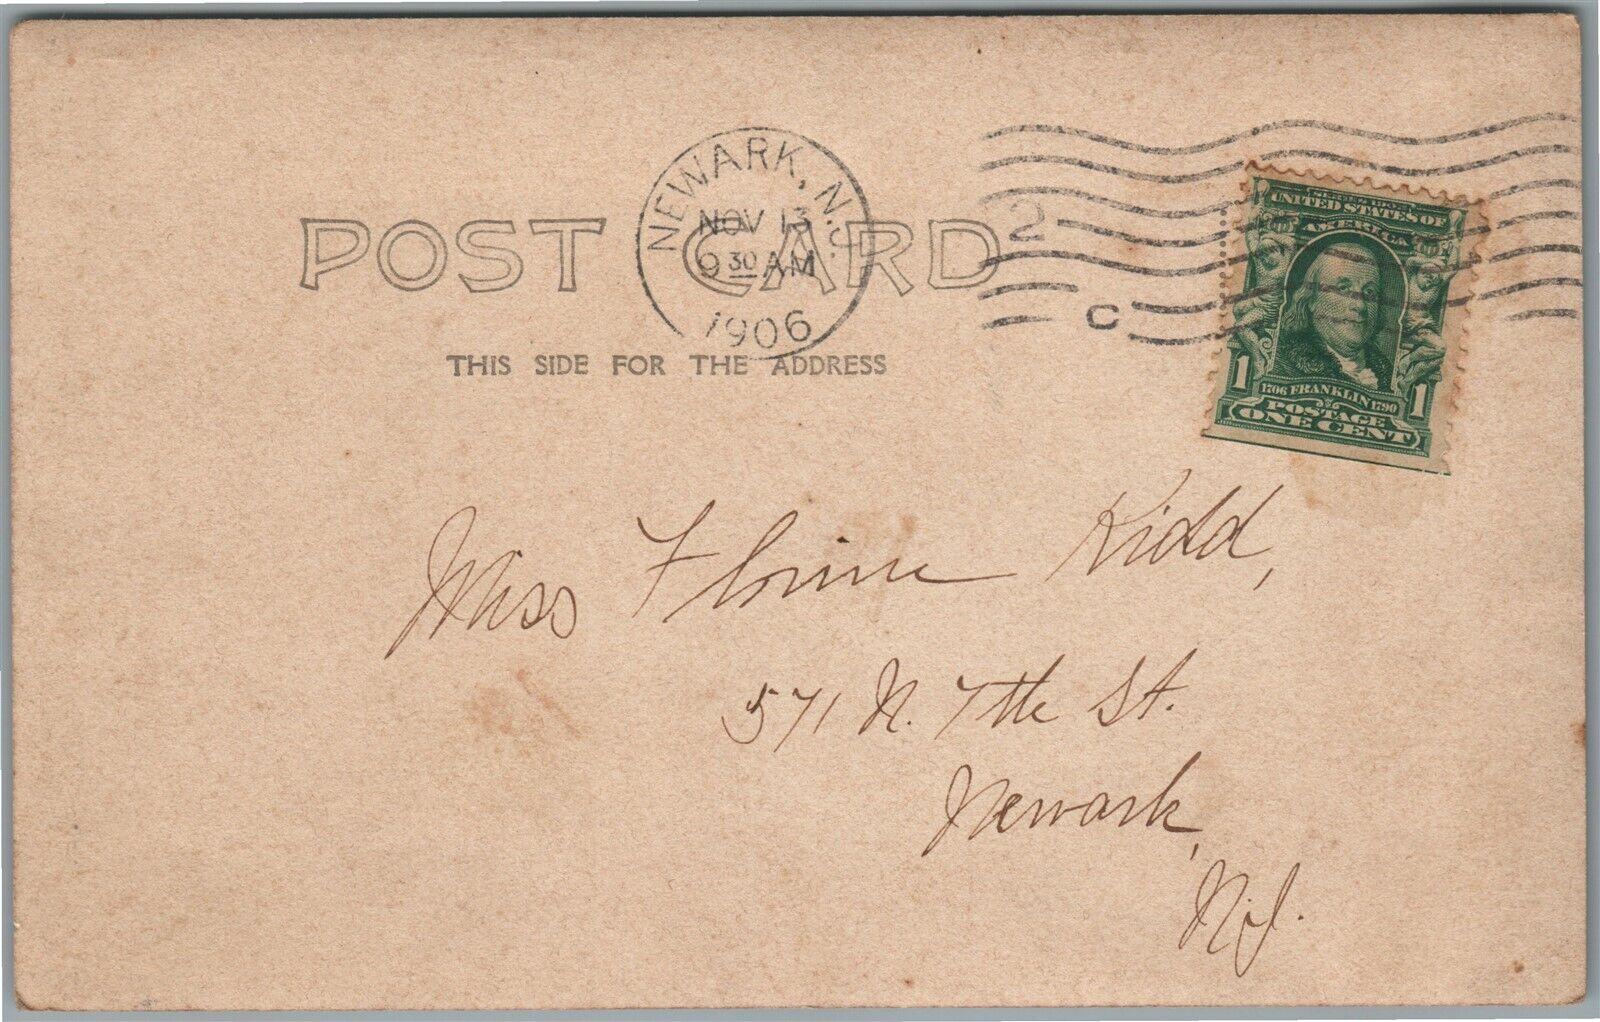 NEWARK, N.J.
NOV 13
9 30 AM
1906
2
C
POST CARD
THIS SIDE FOR THE ADDRESS
SERIES 1902
UNITED STATES OF
AMERICA
1 1
1706 FRANKLIN 1790
POSTAGE
ONE CENT
Miss Florine Kidd,
571 N. 7th St.
Newark,
N.J.